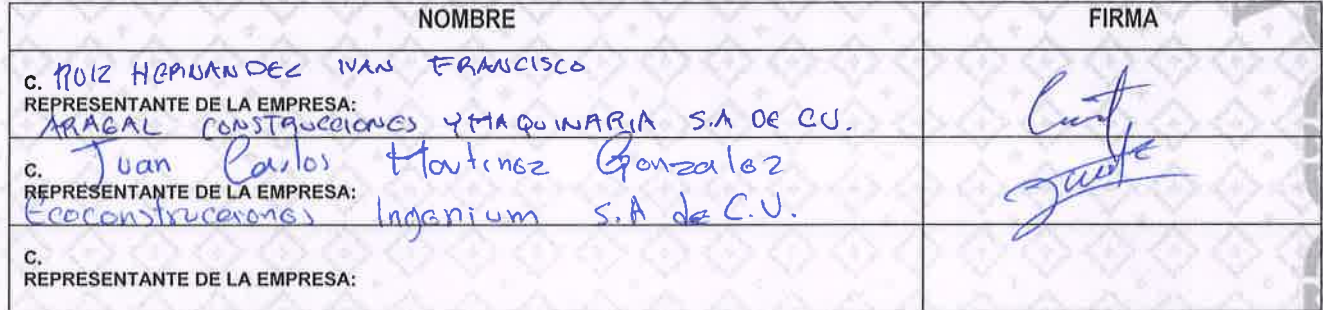 NOMBRE FIRMA
C. RUIZ HERNANDEZ IVAN FRANCISCO
REPRESENTANTE DE LA EMPRESA:
ARAGAL CONSTRUCCIONES Y MAQUINARIA S.A DE C.V.
C. Juan Carlos Martinez Gonzalez
REPRESENTANTE DE LA EMPRESA:
Ecoconstrucciones Ingenium S.A de C.V.
C.
REPRESENTANTE DE LA EMPRESA: